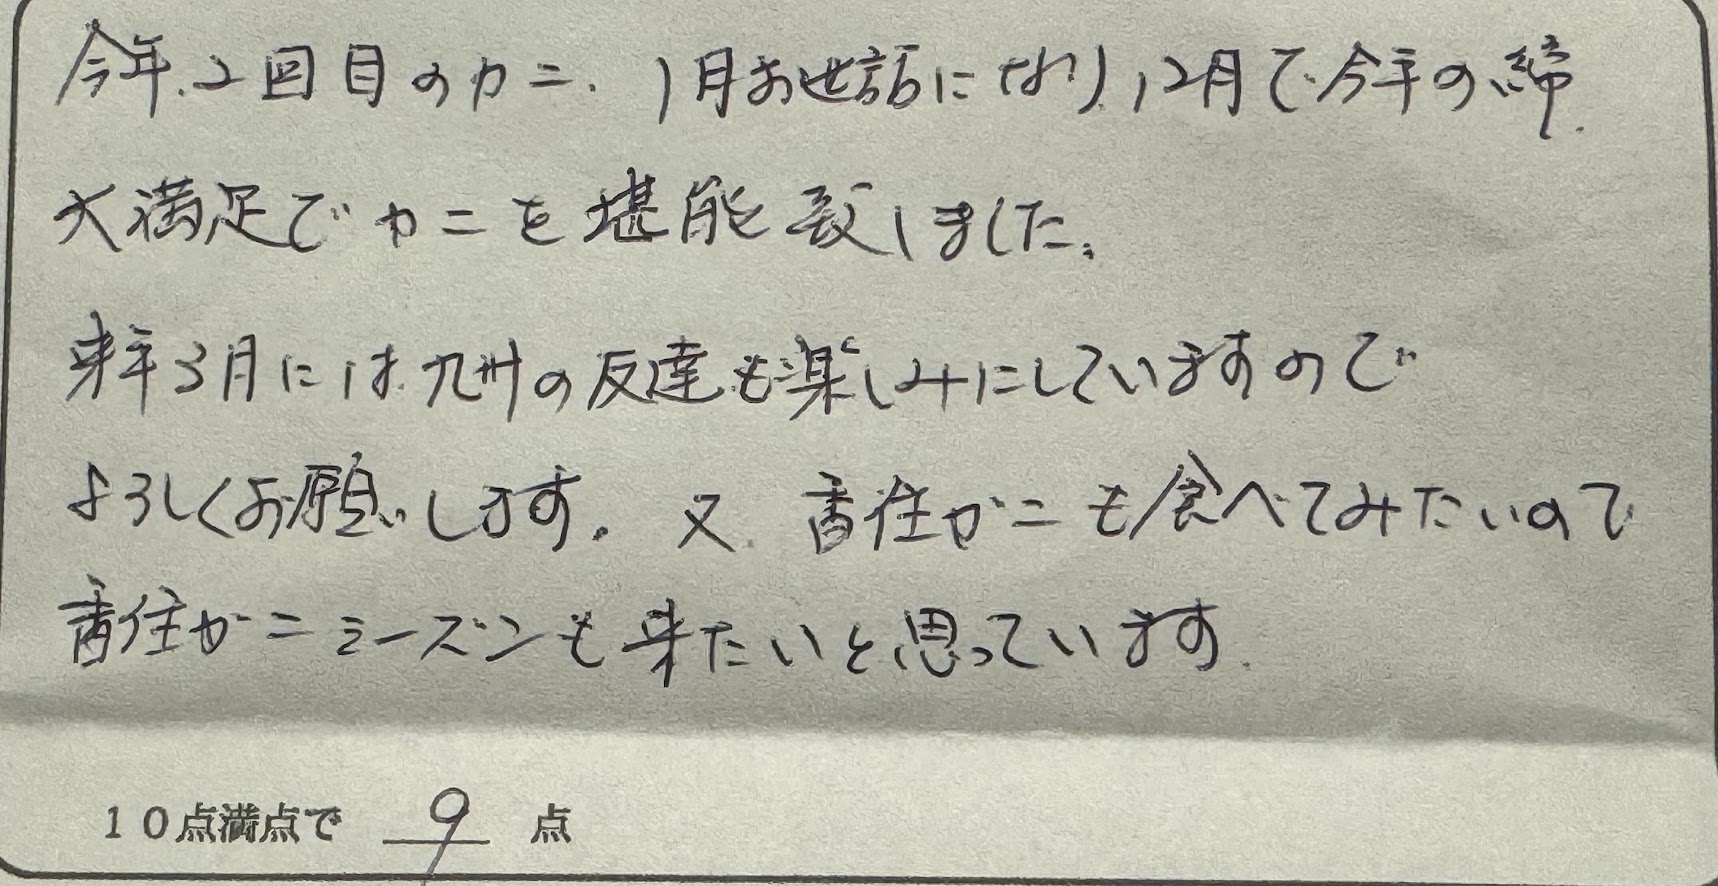 今年、2回目のカニ、1月お世話になり、12月で今年の締
大満足でカニを堪能致しました。
来年3月には九州の友達も楽しみにしていますので
よろしくお願いします。又、香住ガニも食べてみたいので
香住ガニシーズンも来たいと思っています。
10点満点で 9 点